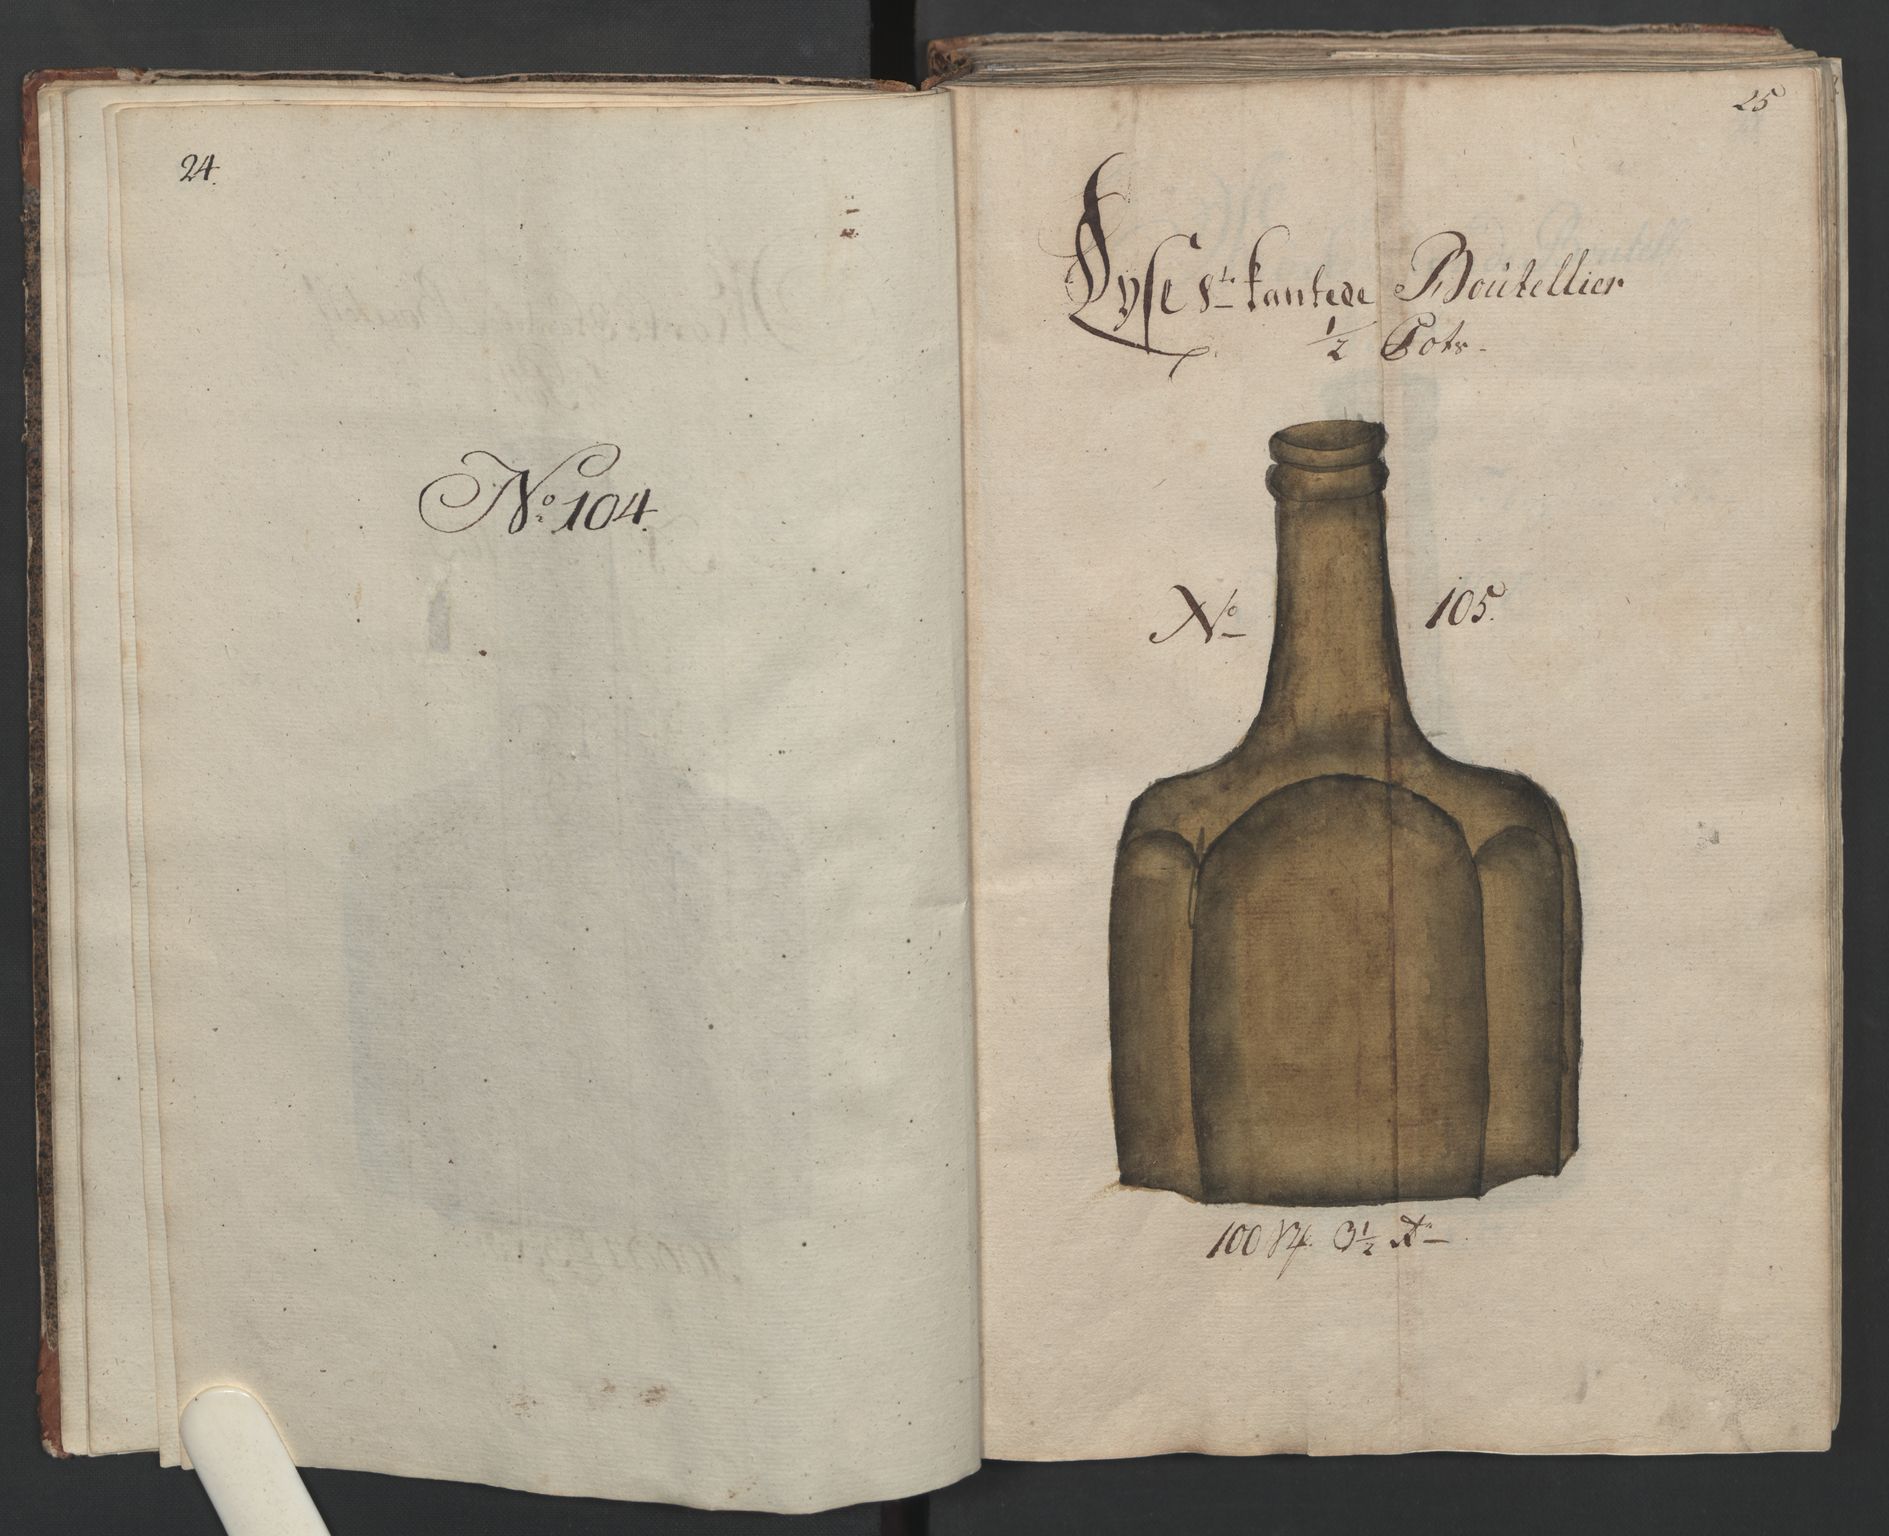 24.
No 104.
25
Lyse 8te kantede Boutellier
1/2 Pots.
No 105.
100 3 1/2